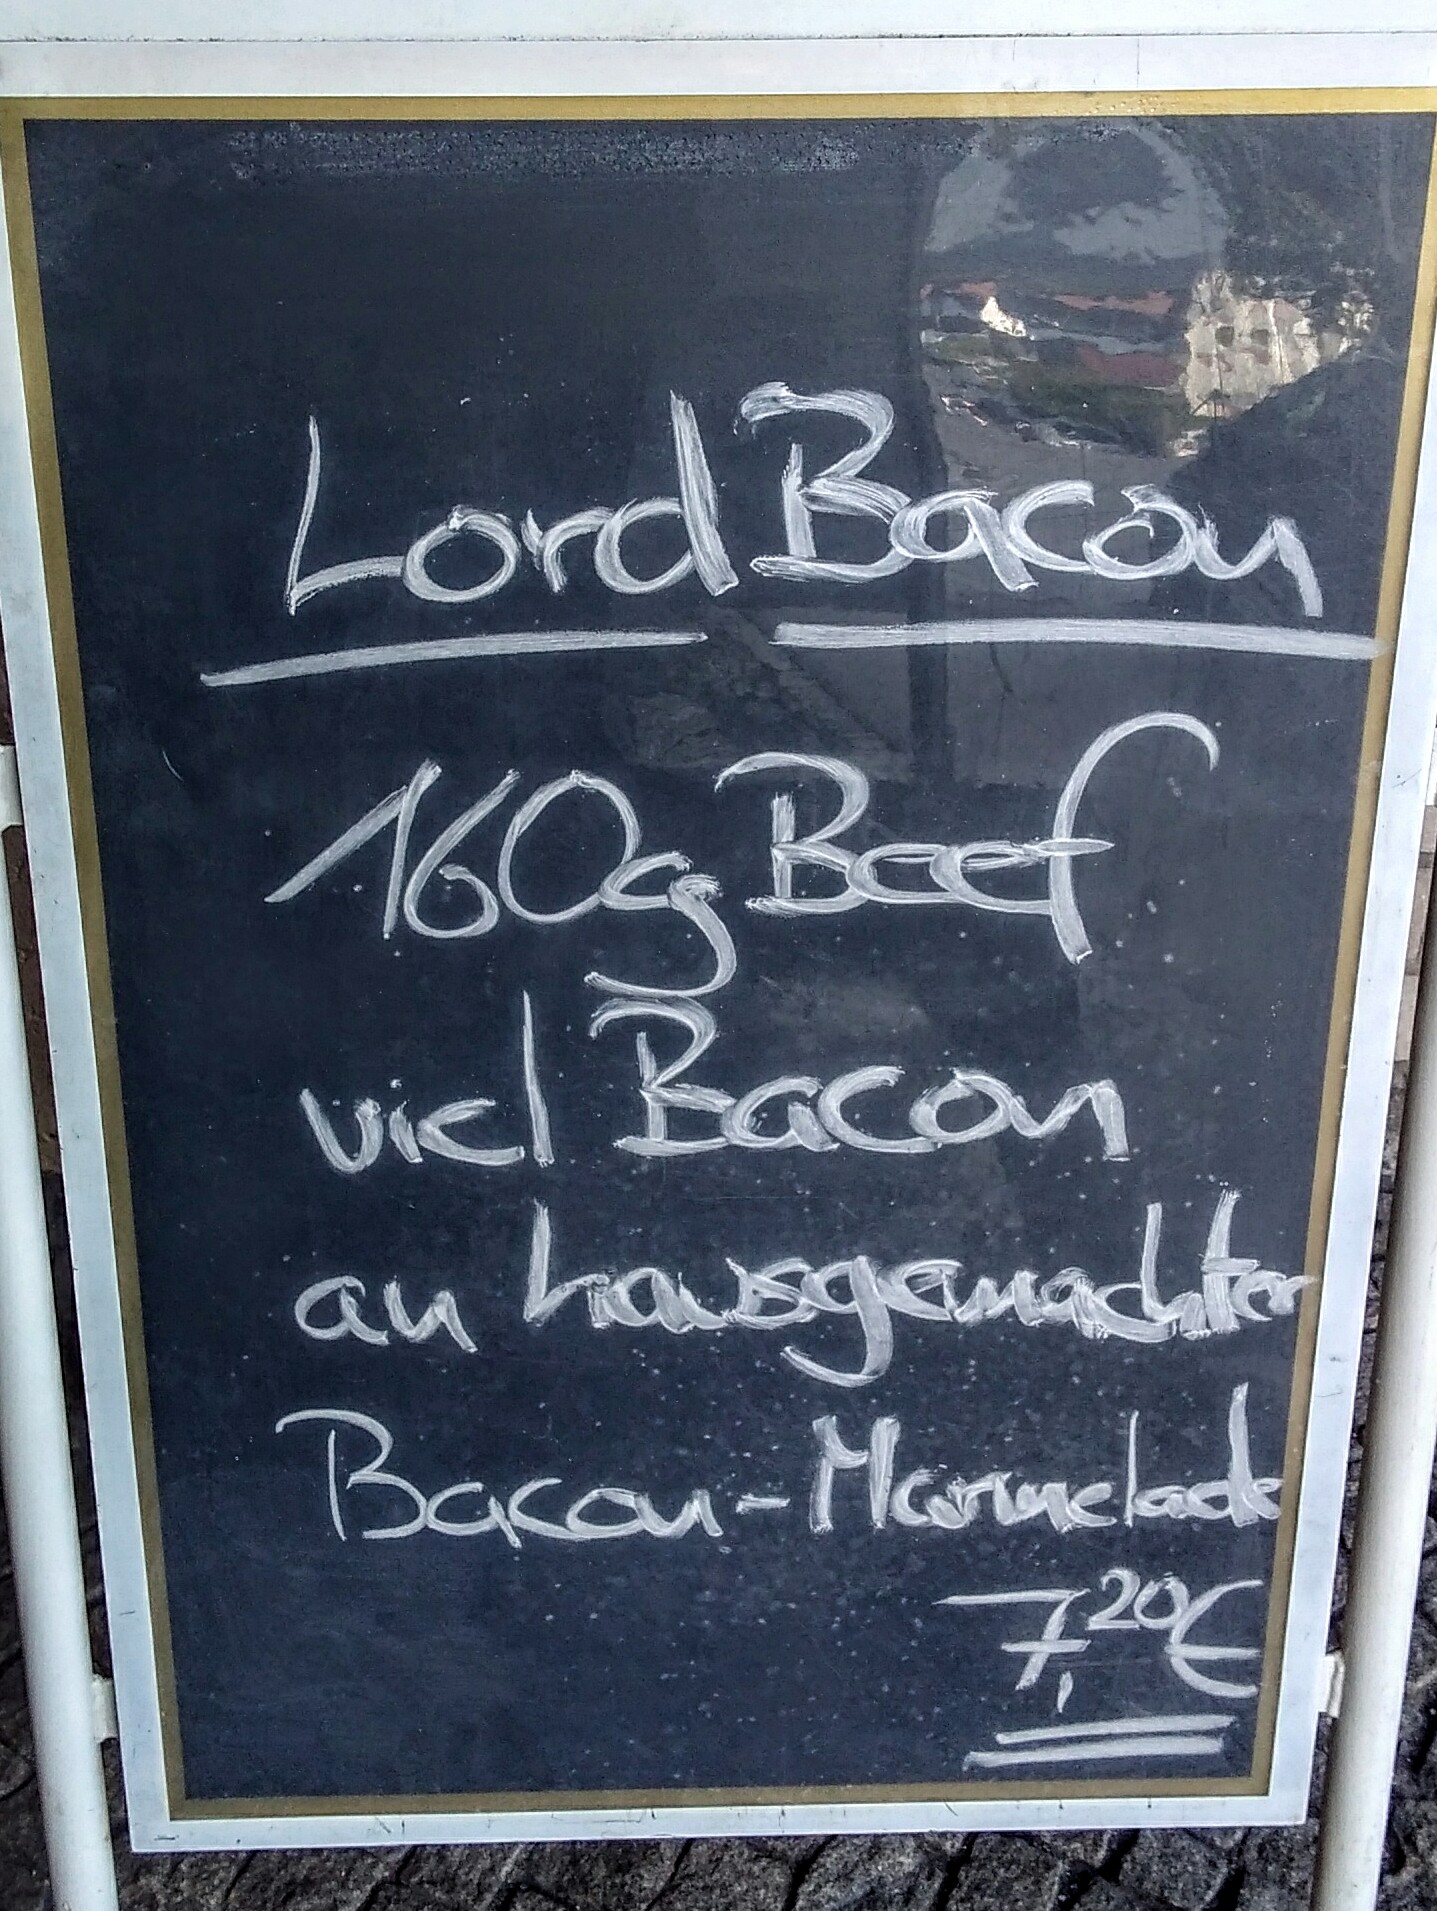 Lord Bacon
160g Beef
viel Bacon
an hausgemachter
Bacon-Marmelade
7,20€